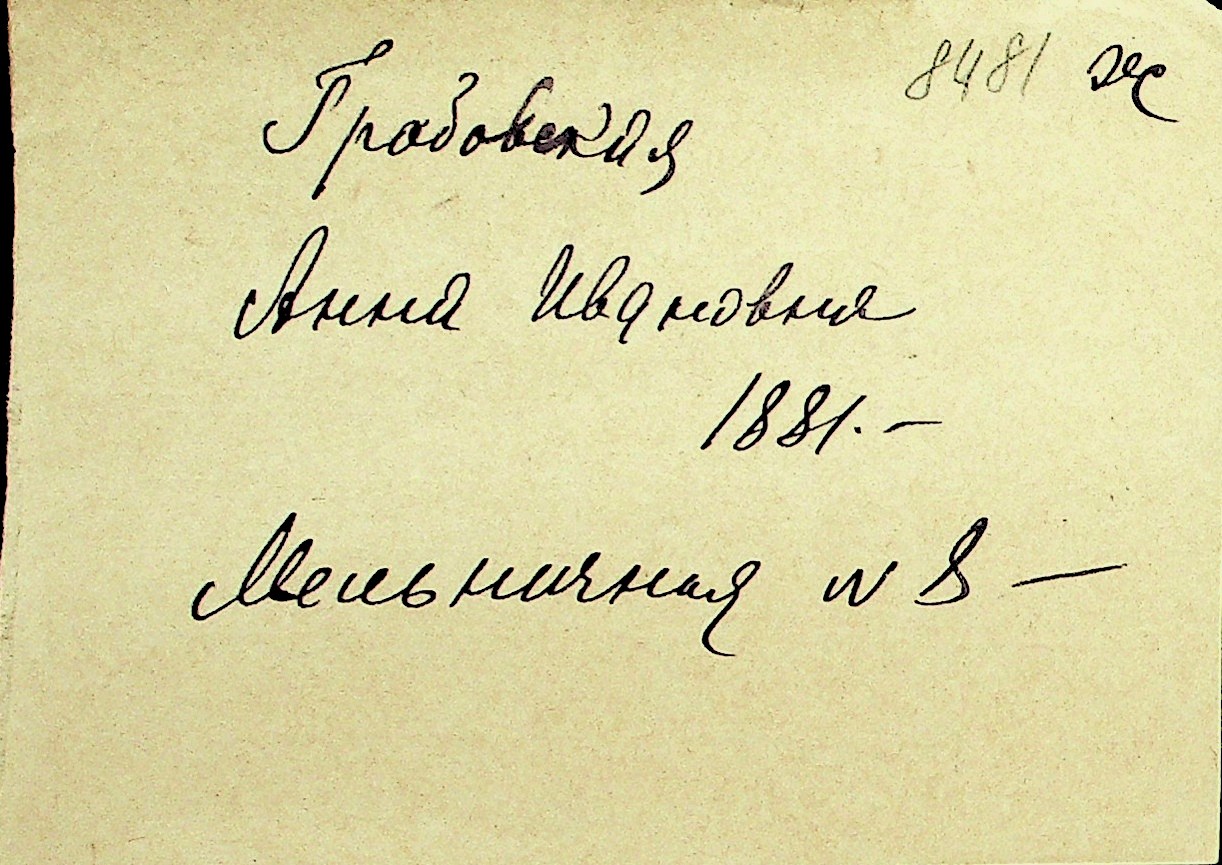 8481 ж
Грабовская
Анна Ивановна
1881.-
Мельничная N 8 —